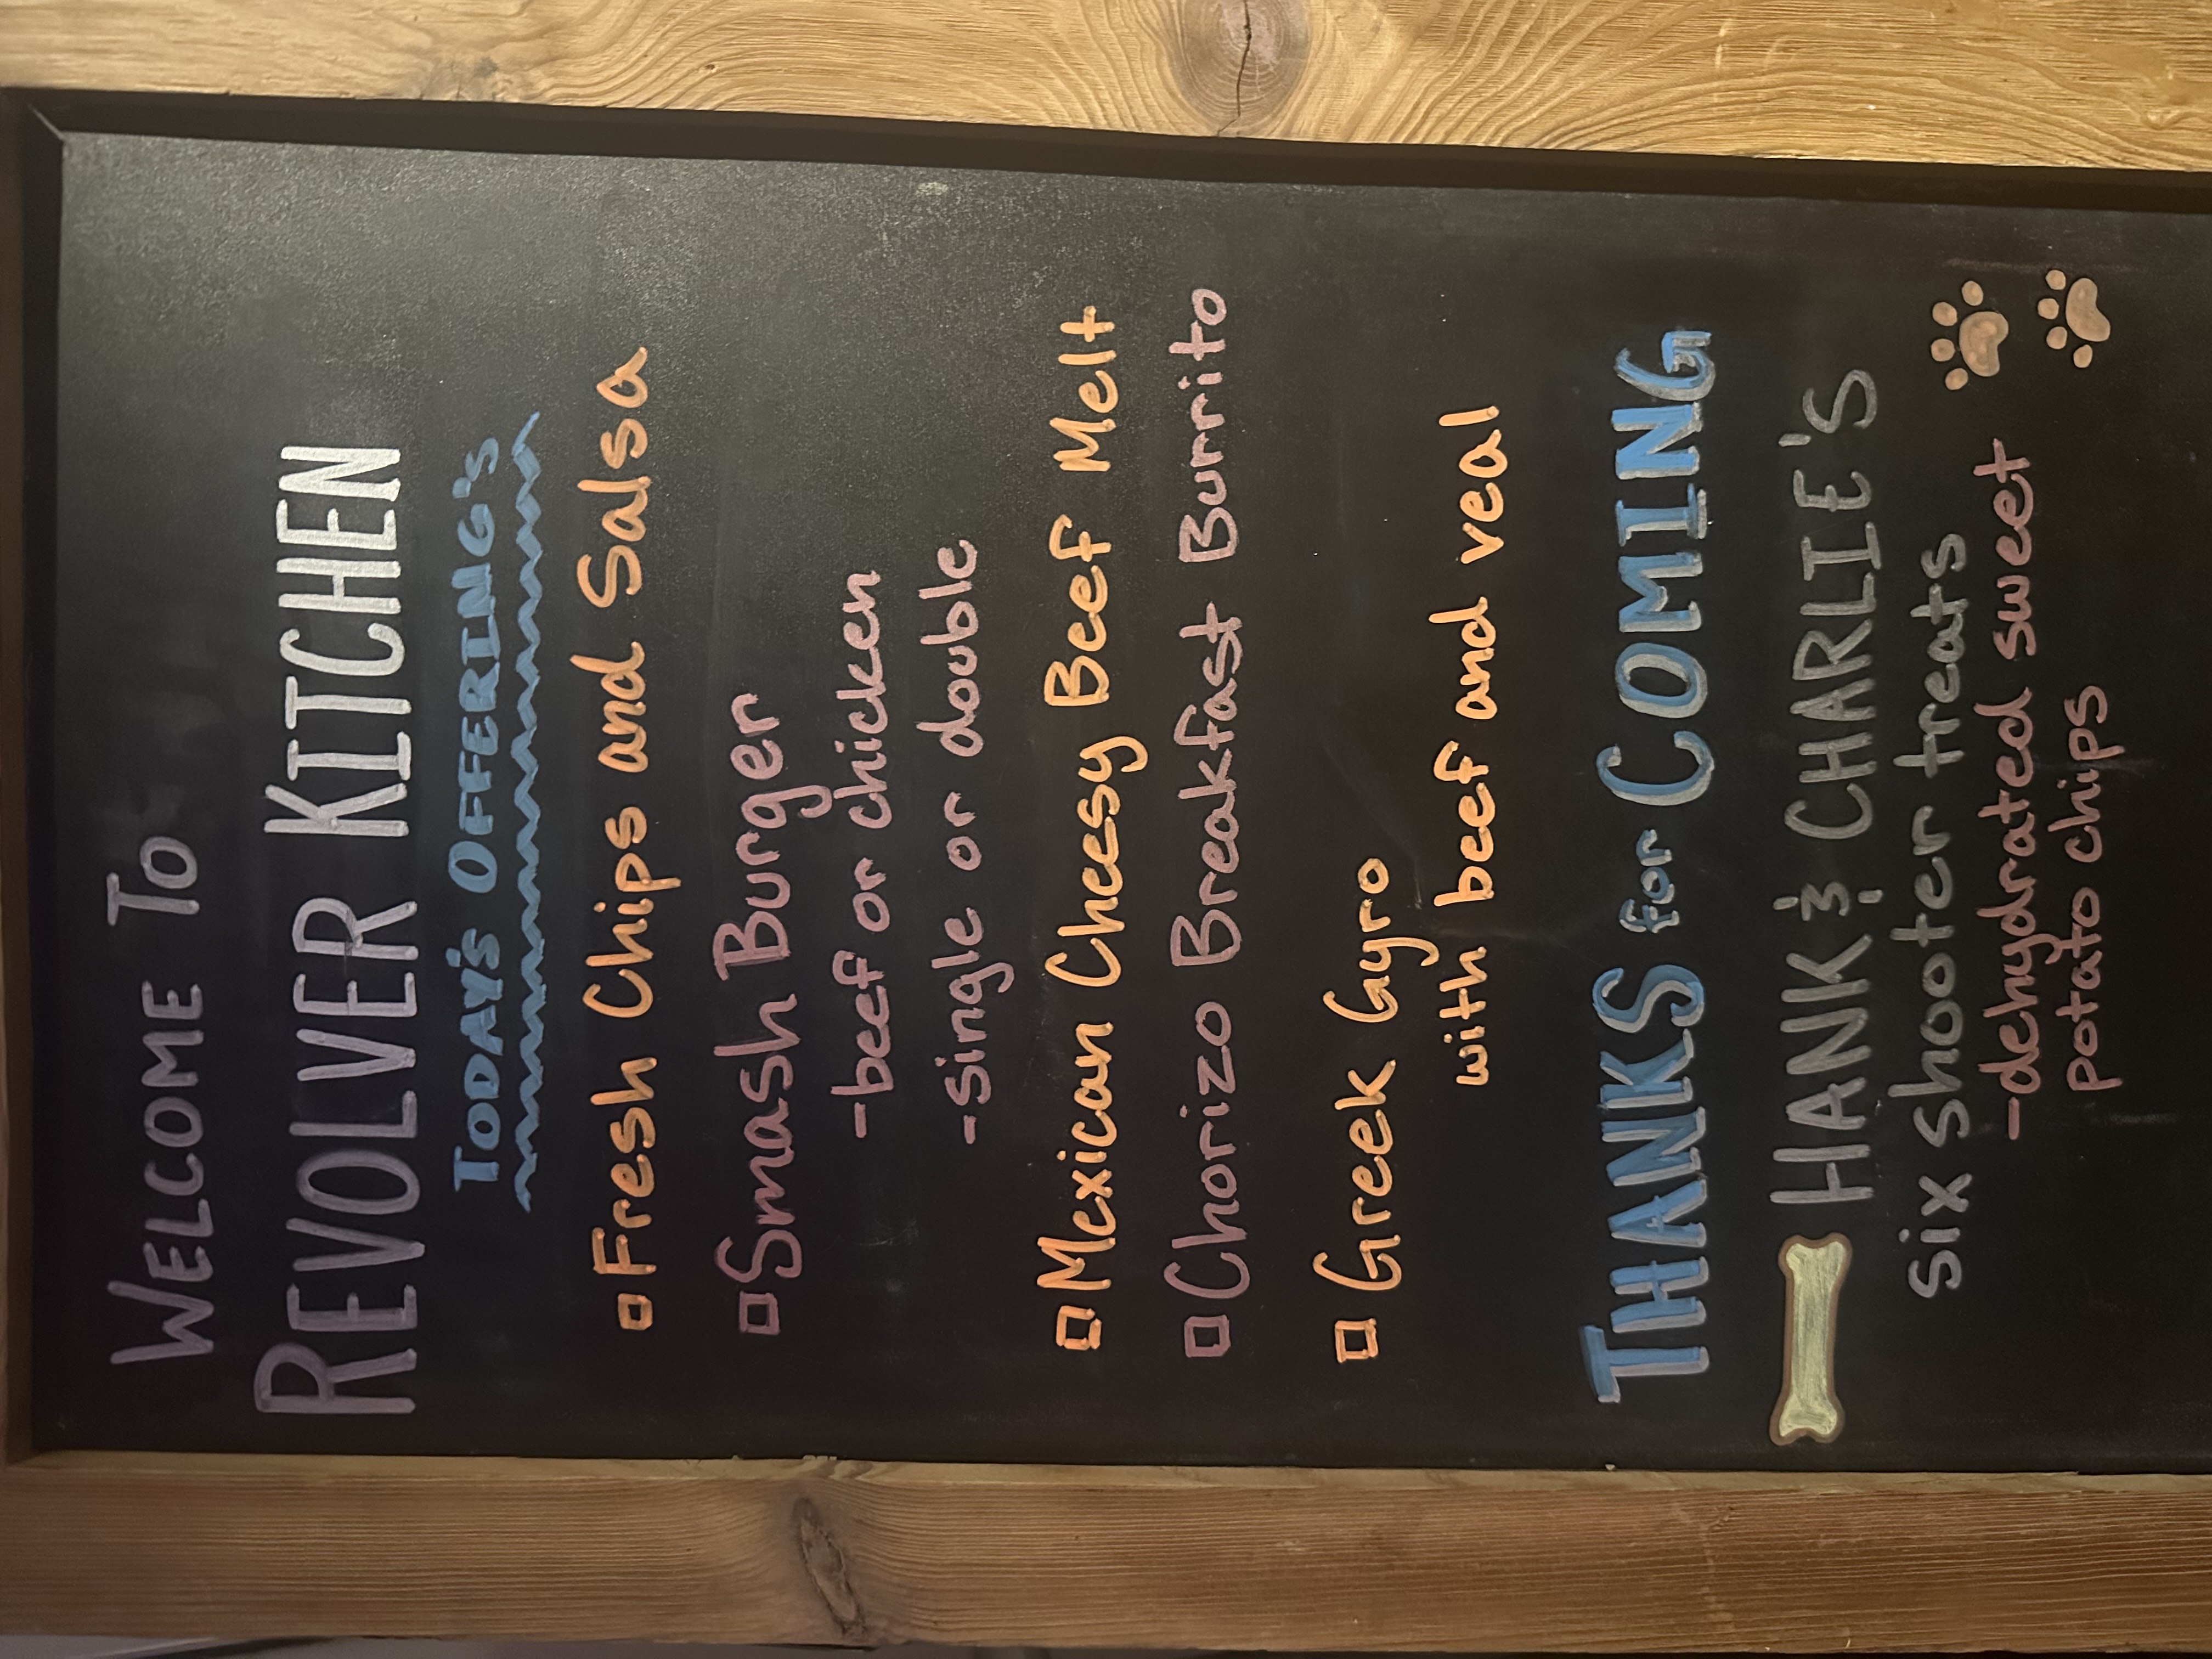 WELCOME TO
REVOLVER KITCHEN
TODAY'S OFFERING'S
Fresh Chips and Salsa
Smash Burger
-beef or chicken
-single or double
Mexican Cheesy Beef Melt
Chorizo Breakfast Burrito
Greek Gyro
with beef and veal
THANKS for COMING
HANK & CHARLIE'S
six shooter treats
-dehydrated sweet
potato chips